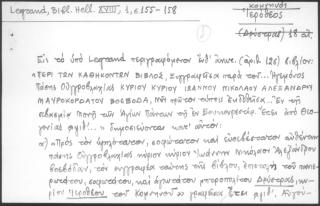 Legrand, Bibl. Hell. XVIII, 1, σ. 155-158
ΚΟΜΝΗΝΟΣ
ΙΕΡΟΘΕΟΣ
(Δρύστρας) 18 αἰ.
Εἰς τὸ ὑπὸ Legrand περιγραφόμενον ὑπ' ἀριθ.
ΠΕΡΙ ΤΩΝ ΚΑΘΗΚΟΝΤΩΝ ΒΙΒΛΟΣ, Συγγραφεῖσα παρὰ τοῦ... Ἡγεμόνος
Πάσης Οὐγγροβλαχίας ΚΥΡΙΟΥ ΚΥΡΙΟΥ ΙΩΑΝΝΟΥ ΝΙΚΟΛΑΟΥ ΑΛΕΞΑΝΔΡΟΥ
ΜΑΥΡΟΚΟΡΔΑΤΟΥ ΒΟΕΒΟΔΑ, Νῦν πρῶτον τύποις ἐκδοθεῖσα... Ἐν τῇ
Μονῇ τῶν Ἁγίων Πάντων τῇ ἐν Βουκουρεστίῳ. Ἔτει ἀπὸ Θεο-
γονίας αψιθ'... σημειοῦνται κατ' αὐτόν:
α) «Πρὸς τὸν ὑψηλότατον, σοφώτατον καὶ εὐσεβέστατον αὐθέντην
πάσης Οὐγγροβλαχίας κύριον κύριον Ἰωάννην Νικόλαον Ἀλεξάνδρου
βοεβόδαν, τὸν συγγραφέα ταύτης τῆς βίβλου, ἐπιστολὴ τοῦ πανιε-
ρωτάτου, σοφωτάτου καὶ λογιωτάτου μητροπολίτου Δρύστρας, κυ-
ρίου Ἱεροθέου τοῦ Κομνηνοῦ» γραφεῖσα ἔτει αψιθ', Αὐγού-